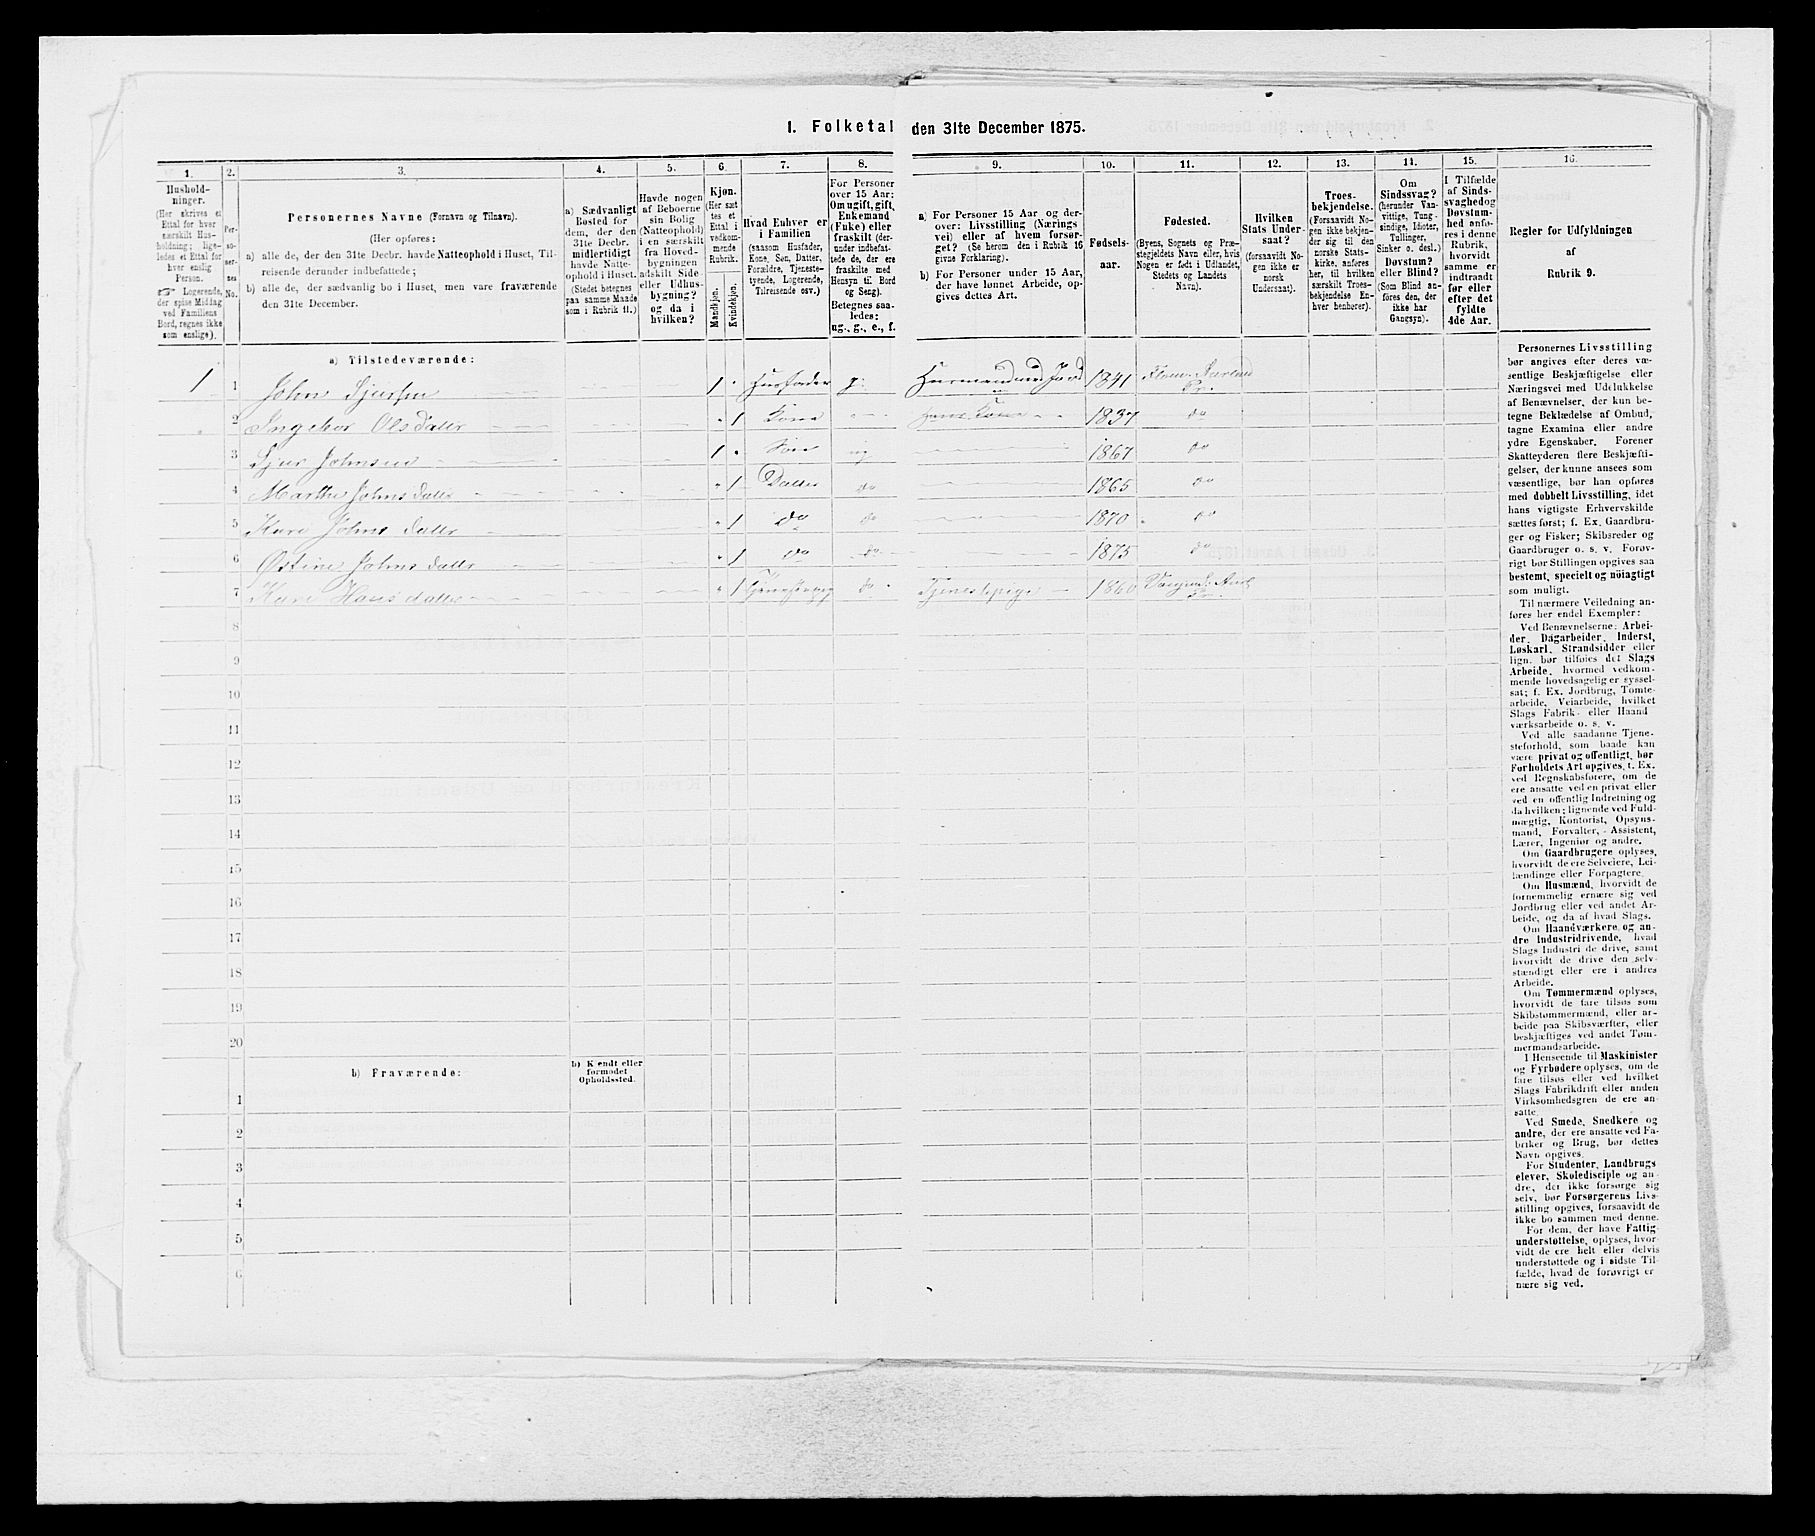 I. Folketal den 31te December 1875.
1.
Hushold-
ninger.
(Her skrives et
Ettal for hver
særskilt Hus-
holdning; lige-
ledes et Ettal for
hver enslig
Person.
☞ Logerende,
der spise Middag
ved Familiens
Bord, regnes ikke
som enslige).
2.
Per-
so-
ner-
nes
No.
3.
Personernes Navne (Fornavn og Tilnavn).
(Her opføres:
a) alle de, der den 31te Decbr. havde Natteophold i Huset, Til-
reisende derunder indbefattede;
b) alle de, der sædvanlig bo i Huset, men vare fraværende
den 31te December.
4.
a) Sædvanligt
Bosted for
dem, der den
31te Decbr.
midlertidigt
havde Natte-
ophold i Huset.
(Stedet betegnes
paa samme Maade
som i Rubrik 11.)
5.
Havde nogen
af Beboerne
sin Bolig
(Natteophold)
i en særskilt
fra Hoved-
bygningen
adskilt Side-
eller Udhus-
bygning?
og da i
hvilken?
6.
Kjøn.
(Her sæt-
tes et
Ettal i
vedkom-
mende
Rubrik.
Mandkjøn.
Kvindekjøn.
7.
Hvad Enhver er
i Familien
(saasom Husfader,
Kone, Søn, Datter,
Forældre, Tjeneste-
tyende, Logerende,
Tilreisende osv.)
8.
For Personer
over 15 Aar:
Om ugift, gift,
Enkemand
(Enke) eller
fraskilt (der-
under indbefat-
tede de, der ere
fraskilte med
Hensyn til Bord
og Seng).
Betegnes saa-
ledes:
ug., g., e., f.
9.
a) For Personer 15 Aar og der-
over: Livsstilling (Nærings-
vei) eller af hvem forsør-
get? (Se herom den i Rubrik 16
givne Forklaring).
b) For Personer under 15 Aar,
der have lønnet Arbeide, op-
gives dettes Art.
10.
Fødsels-
aar.
11.
Fødested.
(Byens, Sognets og Præ-
stegjeldets Navn eller, hvis
Nogen er født i Udlandet,
Stedets og Landets
Navn).
12.
Hvilken
Stats Under-
saat?
(forsaavidt No-
gen ikke er
norsk
Undersaat).
13.
Troes-
bekjendelse.
(Forsaavidt No-
gen ikke bekjen-
der sig til den
norske Stats-
kirke, anføres
her, til hvilken
særskilt Troes-
bekjendelse En-
hver henhører).
14.
Om
Sindssvag?
(herunder Van-
vittige, Tung-
sindige, Idioter,
Tullinger,
Sinker o. desl.)
Døvstum?
eller Blind?
(Som Blind an-
føres den, der
ikke har
Gangsyn).
15.
I Tilfælde
af Sinds-
svaghed og
Døvstum-
hed anfø-
res i denne
Rubrik,
hvorvidt
samme er
indtraadt
før eller
efter det
fyldte
4de Aar.
16.
Regler for Udfyldningen
af
Rubrik 9.
a) Tilstedeværende:
1 1 John Sjursen 1 " Husfader g. Husmand med Jord 1841 Flaam Aurland Pr.
2 Ingebor Olsdatter " 1 Kone 1837 do
3 Sjur Johnsen 1 " Søn ug 1867 do
4 Martha Johnsdatter " 1 Datter do 1865 do
5 Kari Johnsdatter " 1 do do 1870 do
6 Østine Johnsdatter " 1 do do 1875 do
7 Kari Hansdatter " 1 do Tjenestepige 1860 Pr.
8
9
10
11
12
13
14
15
16
17
18
19
20
b) Fraværende:
b) Kjendt eller
formodet
Opholdssted.
1
2
3
4
5
6
Personernes Livsstilling
bør angives efter deres væ-
sentlige Beskjæftigelse eller
Næringsvei med Udelukkelse
af Benævnelser, der kun be-
tegne Beklædelse af Ombud,
tagne Examina eller andre
ydre Egenskaber. Forener
Skatteyderen flere Beskjæfti-
gelser, der kunne ansees som
væsentlige, bør han opføres
med dobbelt Livsstilling, idet
hans vigtigste Erhvervskilde
sættes først; f. Ex. Gaardbru-
ger og Fisker; Skibsreder og
Gaardbruger o. s. v. Forøv-
rigt bør Stillingen opgives saa
bestemt, specielt og nöiagtigt
som muligt.
Til nærmere Veiledning an-
føres her endel Exempler:
Ved Benævnelserne: Arbei-
der, Dagarbeider, Inderst,
Løskarl, Strandsidder eller
lign. bør tilføies det Slags
Arbeide, hvormed vedkom-
mende hovedsagelig er syssel-
sat; f. Ex. Jordbrug, Tomte-
arbeide, Veiarbeide, hvilket
Slags Fabrik- eller Haand-
værksarbeide o. s. v.
Ved alle saadanne Tjene-
steforhold, som baade kan
være privat og offentligt, bør
Forholdets Art opgives, f. Ex.
ved Regnskabsførere, om de
ere ansatte ved en privat eller
ved en offentlig Indretning og
da hvilken; lignende ved Fuld-
mægtig, Kontorist, Opsyns-
mand, Forvalter, Assistent,
Lærer, Ingeniør og andre.
Om Gaardbrugere oplyses,
hvorvidt de ere Selveiere, Lei-
lændinge eller Forpagtere.
Om Husmænd, hvorvidt de
fornemmelig ernære sig ved
Jordbrug eller ved andet Ar-
beide, og da af hvad Slags.
Om Haandværkere og an-
dre Industridrivende, hvad
Slags Industri de drive, samt
hvorvidt de drive den selv-
stændigt eller ere i andres
Arbeide.
Om Tømmermænd oplyses,
hvorvidt de fare tilsøs som
Skibstømmermænd, eller ar-
beide paa Skibsværfter, eller
beskjæftiges ved andet Tøm-
mermandsarbeide.
I Henseende til Maskinister
og Fyrbødere oplyses, om de
fare tilsøs eller ved hvilket
Slags Fabrikdrift eller anden
Virksomhedsgren de ere an-
satte.
Ved Smede, Snedkere og
andre, der ere ansatte ved Fa-
briker og Brug, bør dettes
Navn opgives.
For Studenter, Landbrugs-
elever, Skoledisciple og an-
dre, der ikke forsørge sig
selv, bør Forsørgerens Livs-
stilling opgives, forsaavidt de
ikke bo sammen med denne.
For dem, der have Fattig-
understøttelse, oplyses, hvor-
vidt de ere helt eller delvis
understøttede og i sidste Til-
fælde, hvad de forøvrigt er-
nære sig ved.